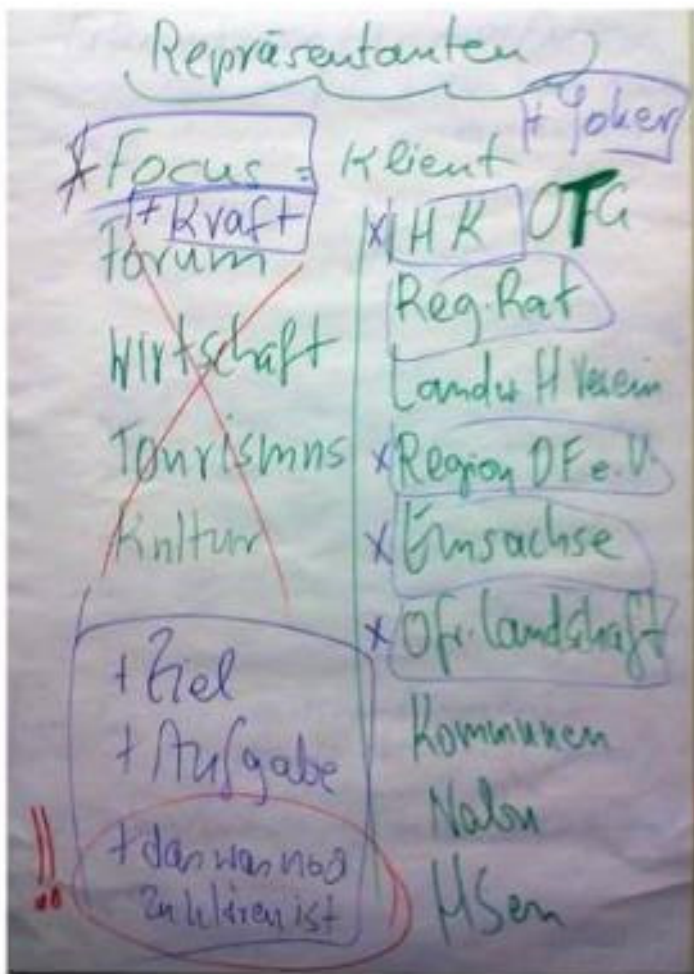 Repräsentanten
+ Joker
Focus = Klient
+ Kraft
Forum
Wirtschaft
Tourismus
Kultur
+ Ziel
+ Aufgabe
+ das was noch
zu klären ist
!!
x IHK OTG
Reg. Rat
Landw H Verein
x Region OF e.V.
x Emsachse
x Ofr. Landschaft
Kommunen
HSem